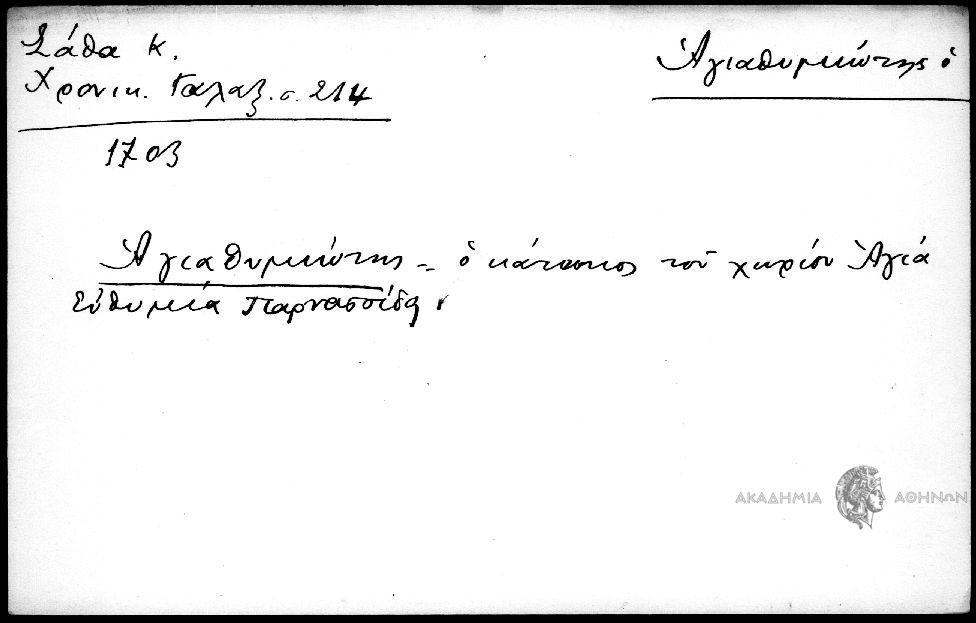 Σάθα Κ.
Χρονικ. Γαλαξ. σ. 214
Ἀγιαθυμιώτης ὁ
1703
Ἀγιαθυμιώτης = ὁ κάτοικος τοῦ χωρίου Ἁγιά
Εὐθυμιά Παρνασσίδος
ΑΚΑΔΗΜΙΑ ΑΘΗΝΩΝ